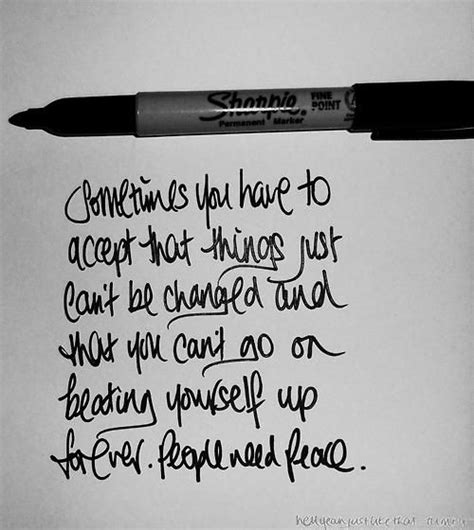 Sharpie.
FINE
POINT
Permanent Marker
Sometimes you have to
accept that things just
can't be changed and
that you can't go on
beating yourself up
forever. People need peace.